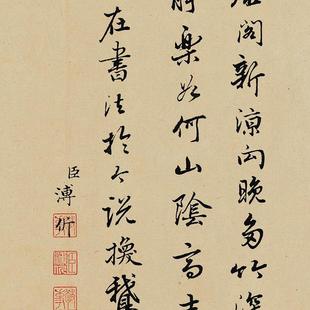 閣新涼向晚多竹深
樂如何山陰高士
在書法於今說換鵝
臣溥伒